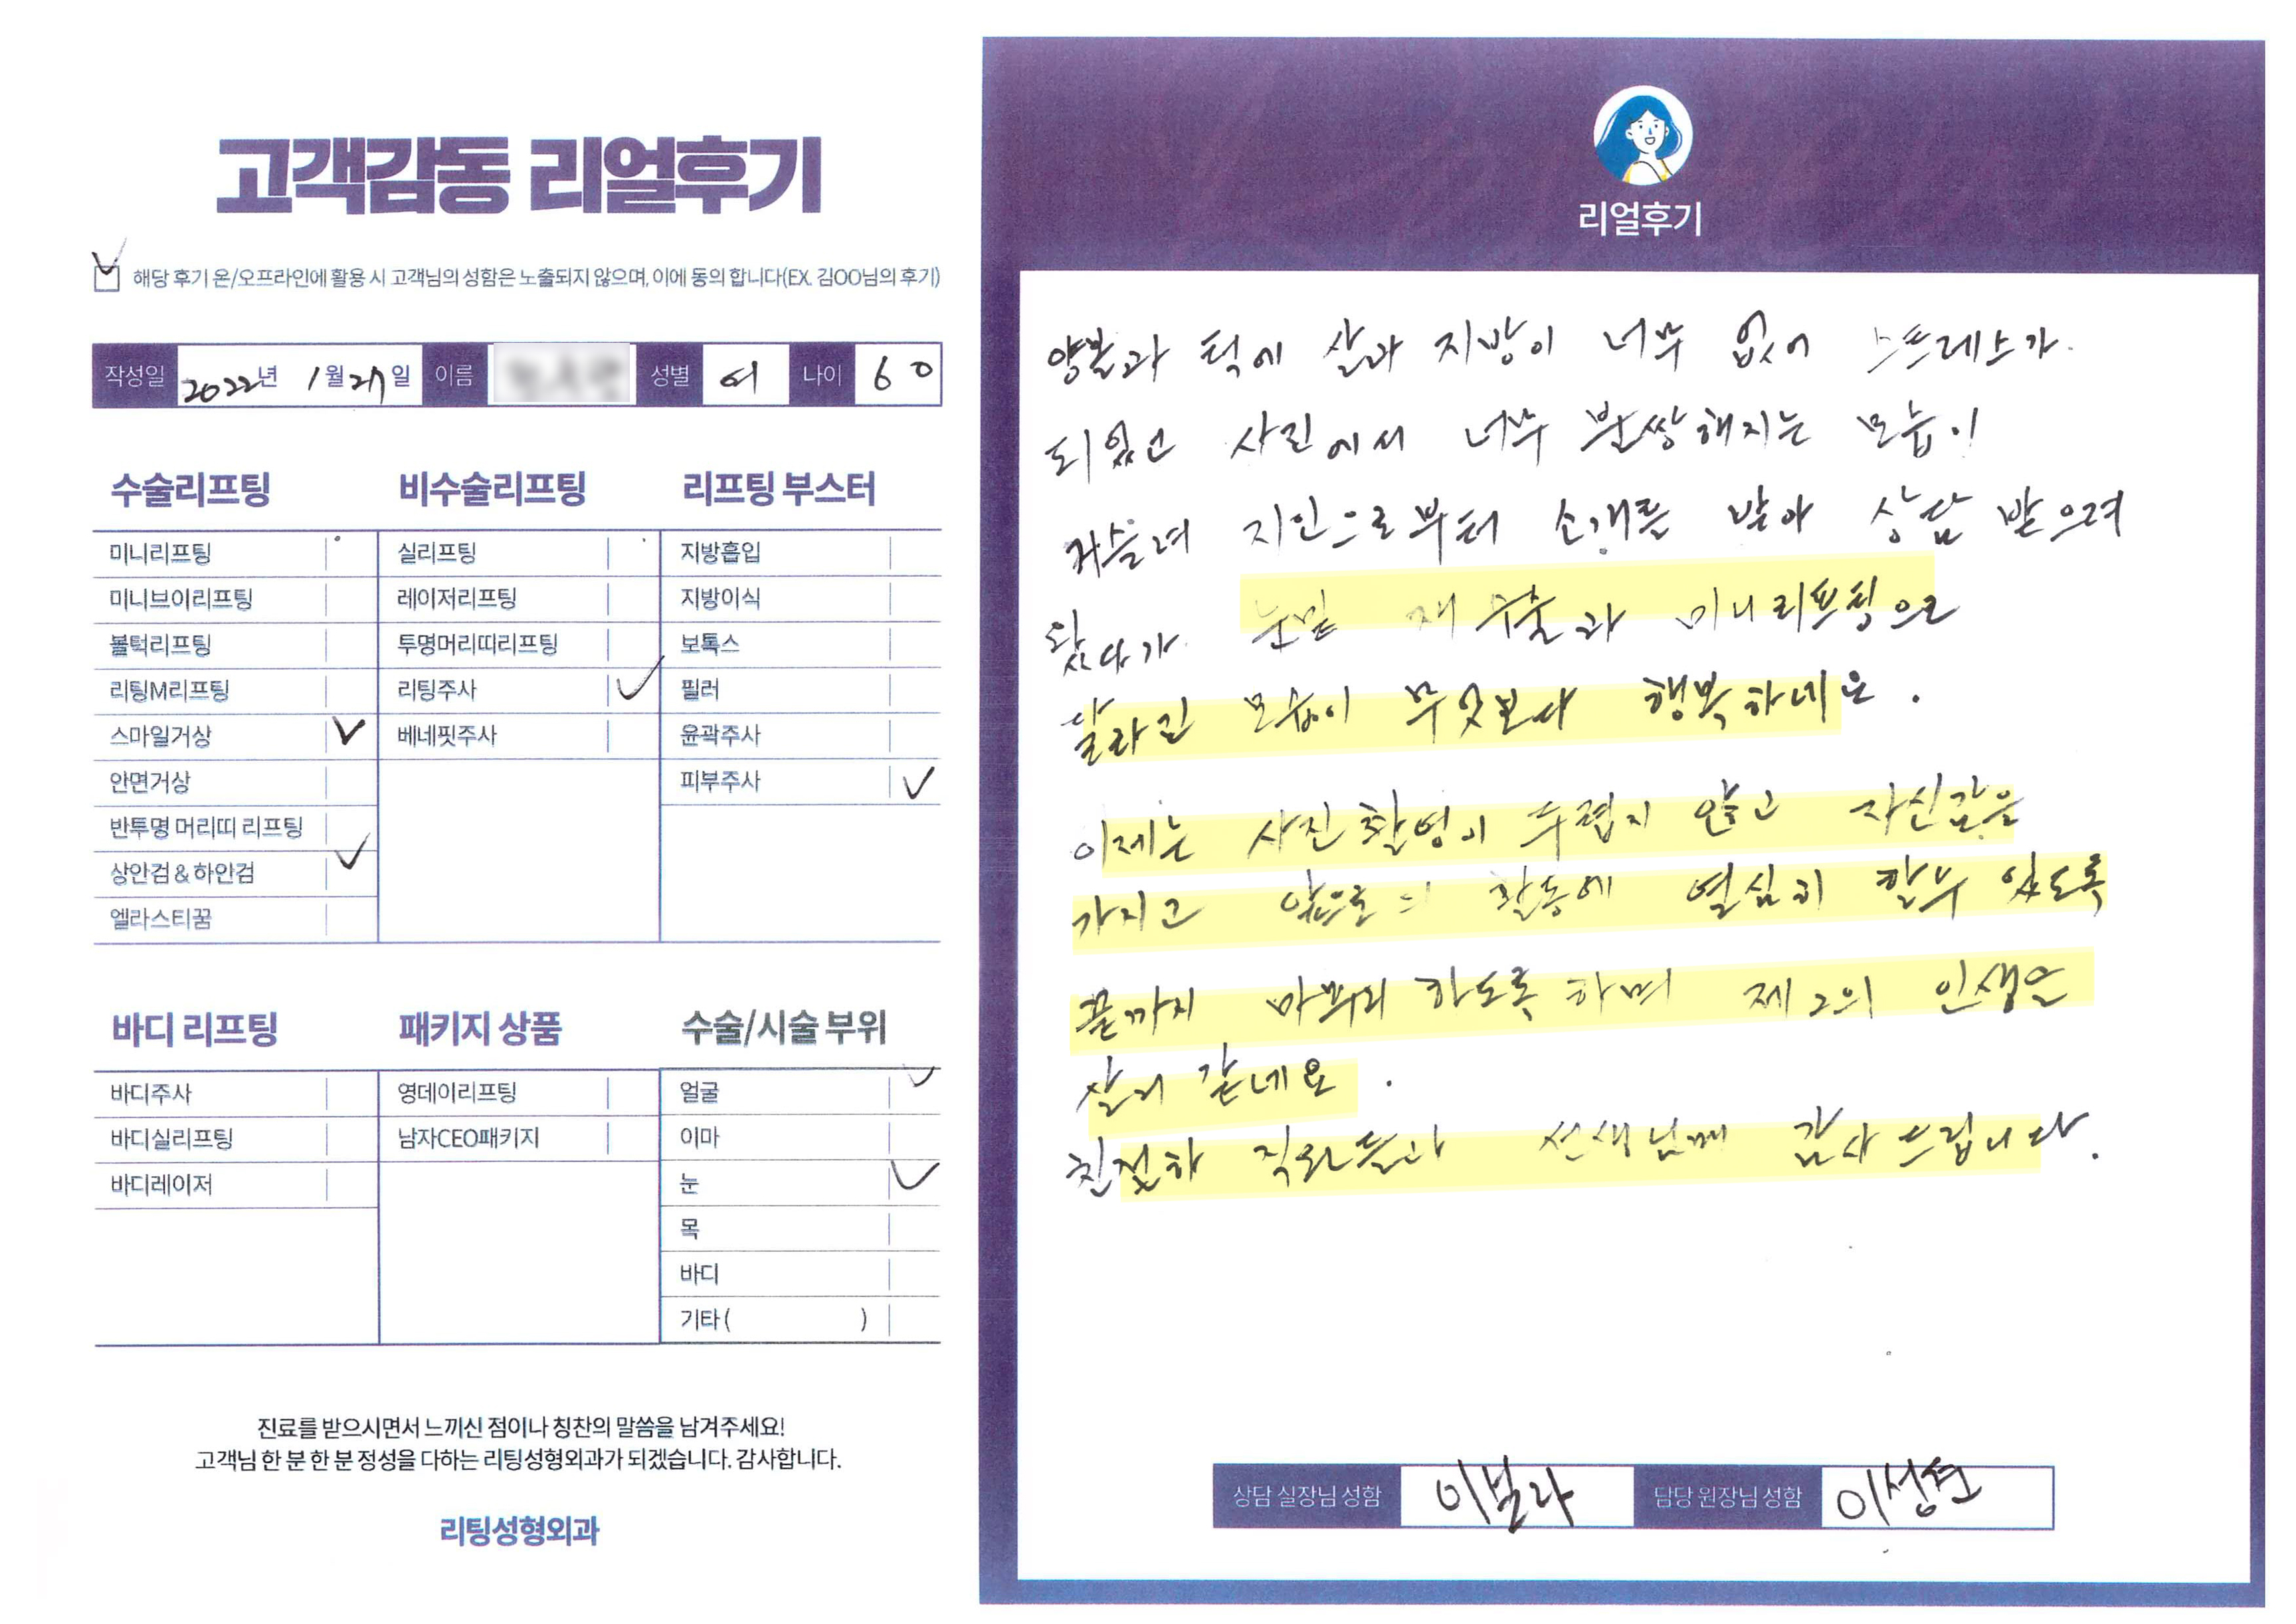 고객감동 리얼후기
해당 후기 온/오프라인에 활용 시 고객님의 성함은 노출되지 않으며, 이에 동의 합니다(EX. 김OO님의 후기)
작성일 2022년 1월 27일 이름 성별 여 나이 60
수술리프팅
미니리프팅
미니브이리프팅
볼턱리프팅
리팅M리프팅
스마일거상
안면거상
반투명 머리띠 리프팅
상안검 & 하안검
엘라스티꿈
비수술리프팅
실리프팅
레이저리프팅
투명머리띠리프팅
리팅주사
베네핏주사
리프팅 부스터
지방흡입
지방이식
보톡스
필러
윤곽주사
피부주사
바디 리프팅
바디주사
바디실리프팅
바디레이저
패키지 상품
영데이리프팅
남자CEO패키지
수술/시술 부위
얼굴
이마
눈
목
바디
기타 ( )
진료를 받으시면서 느끼신 점이나 칭찬의 말씀을 남겨주세요!
고객님 한 분 한 분 정성을 다하는 리팅성형외과가 되겠습니다. 감사합니다.
리팅성형외과
리얼후기
양볼과 턱에 살과 지방이 너무 없어 스트레스가
되었고 사진에서 너무 불쌍해지는 모습이
거슬려 지인으로부터 소개를 받아 상담 받으려
왔다가 눈밑 재수술과 미니리프팅으로
달라진 모습이 무엇보다 행복하네요.
이제는 사진촬영이 두렵지 않고 자신감을
가지고 앞으로의 활동에 열심히 할수 있도록
끝까지 마무리 하도록 하며 제2의 인생을
살거 같네요.
친절한 직원들과 선생님께 감사드립니다.
상담 실장님 성함 이보라 담당 원장님 성함 이성준